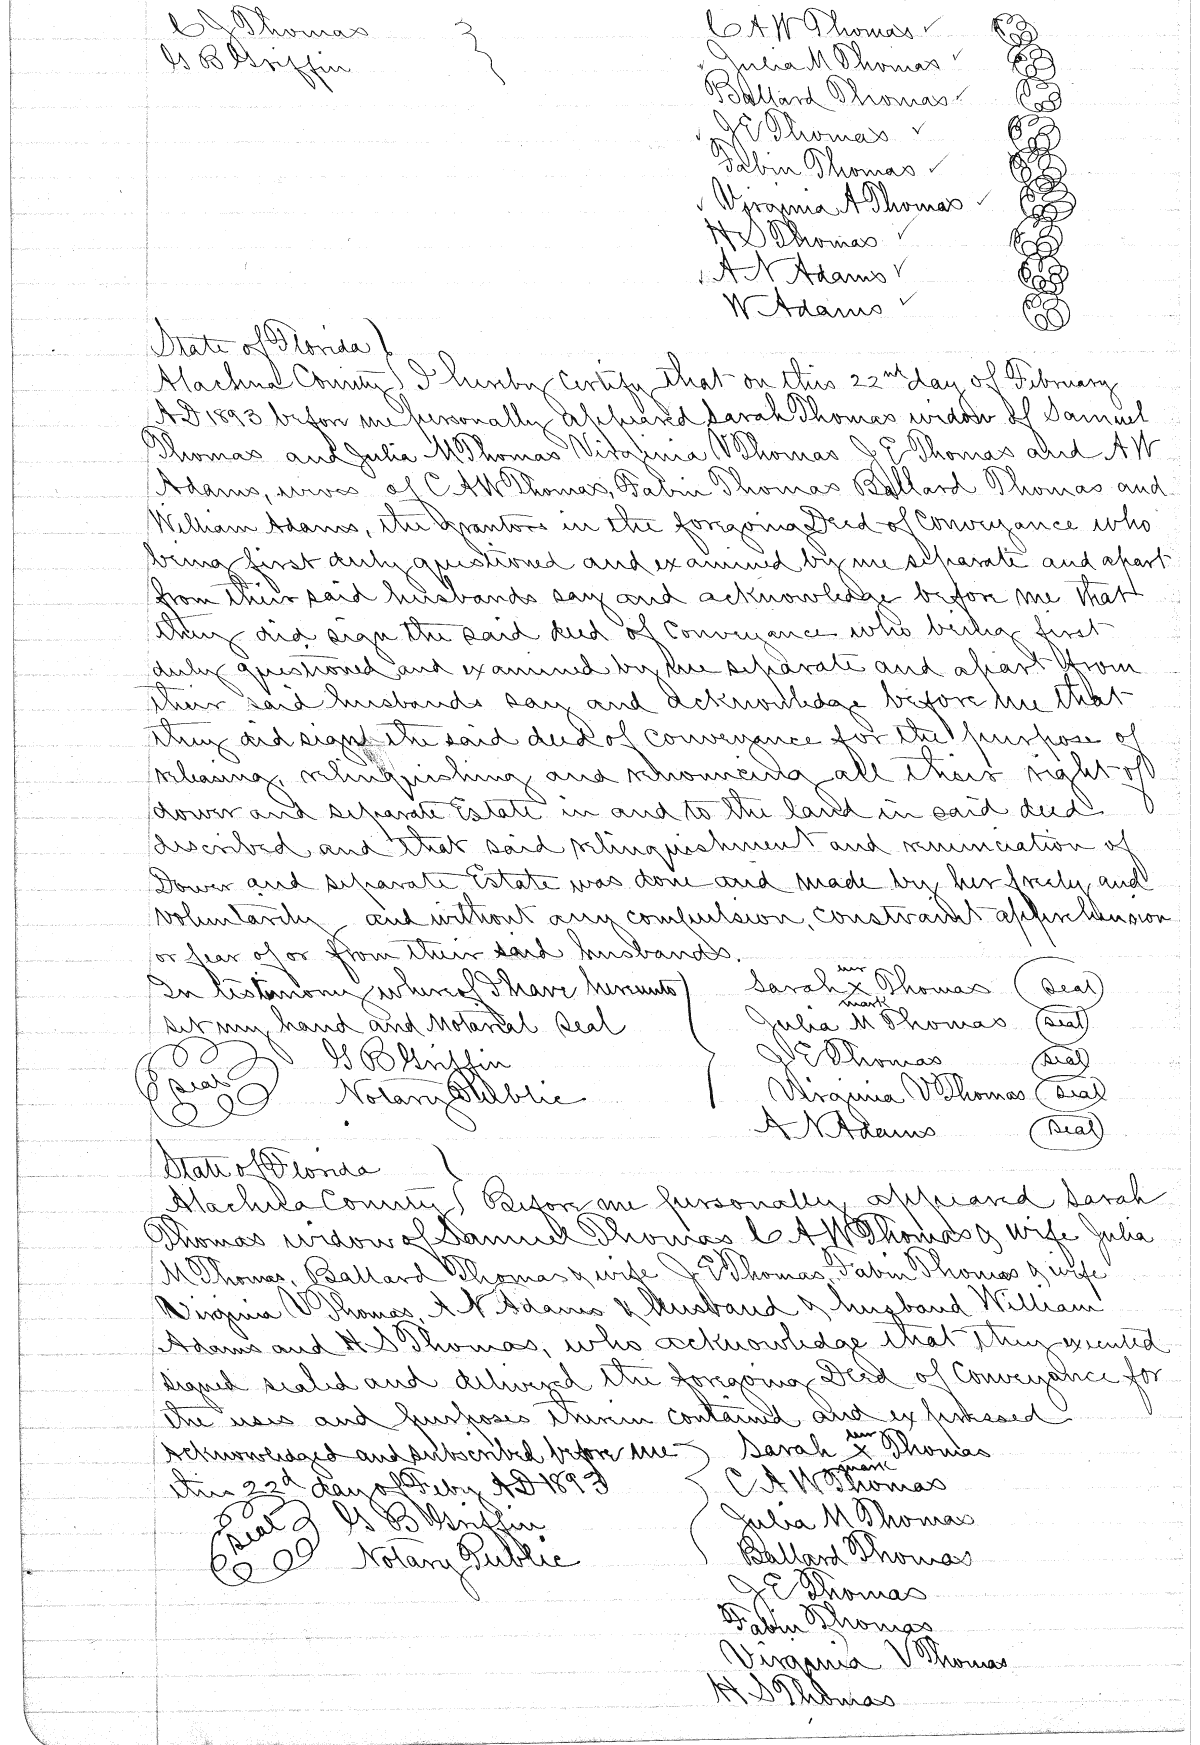 C J Thomas
G B Griffin
C A W Thomas
Julia M Thomas
Ballard Thomas
J E Thomas
Fabin Thomas
Virginia A Thomas
H S Thomas
A N Adams
W Adams
State of Florida
Alachua County I hereby certify that on this 22nd day of February
AD 1893 before me personally appeared Sarah Thomas widow of Samuel
Thomas and Julia M Thomas Virginia V Thomas J E Thomas and A W
Adams, wives of C A W Thomas, Fabin Thomas Ballard Thomas and
William Adams, the grantors in the foregoing Deed of Conveyance who
being first duly questioned and examined by me separate and apart
from their said husbands say and acknowledge before me that
they did sign the said deed of conveyance who being first
duly questioned and examined by me separate and apart from
their said husbands say and acknowledge before me that
they did sign the said deed of conveyance for the purpose of
releasing, relinquishing and renouncing all their right of
dower and separate Estate in and to the land in said deed
described and that said relinquishment and renunciation of
Dower and separate Estate was done and made by her freely and
voluntarily and without any compulsion, constraint apprehension
or fear of or from their said husbands.
In testimony whereof I have hereunto Sarah her x mark Thomas Seal
set my hand and Notarial Seal Julia M Thomas Seal
Seal G B Griffin J E Thomas Seal
Notary Public Virginia V Thomas Seal
A N Adams Seal
State of Florida
Alachua County Before me personally appeared Sarah
Thomas widow of Samuel Thomas C A W Thomas & wife Julia
M Thomas, Ballard Thomas & wife J E Thomas, Fabin Thomas & wife
Virginia V Thomas, A N Adams & Husband & husband William
Adams and H S Thomas, who acknowledge that they executed
signed sealed and delivered the foregoing Deed of Conveyance for
the uses and purposes therein contained and expressed
Acknowledged and subscribed before me Sarah her x mark Thomas
this 22d day of Feby AD 1893 C A W Thomas
Seal G B Griffin Julia M Thomas
Notary Public Ballard Thomas
J E Thomas
Fabin Thomas
Virginia V Thomas
H S Thomas